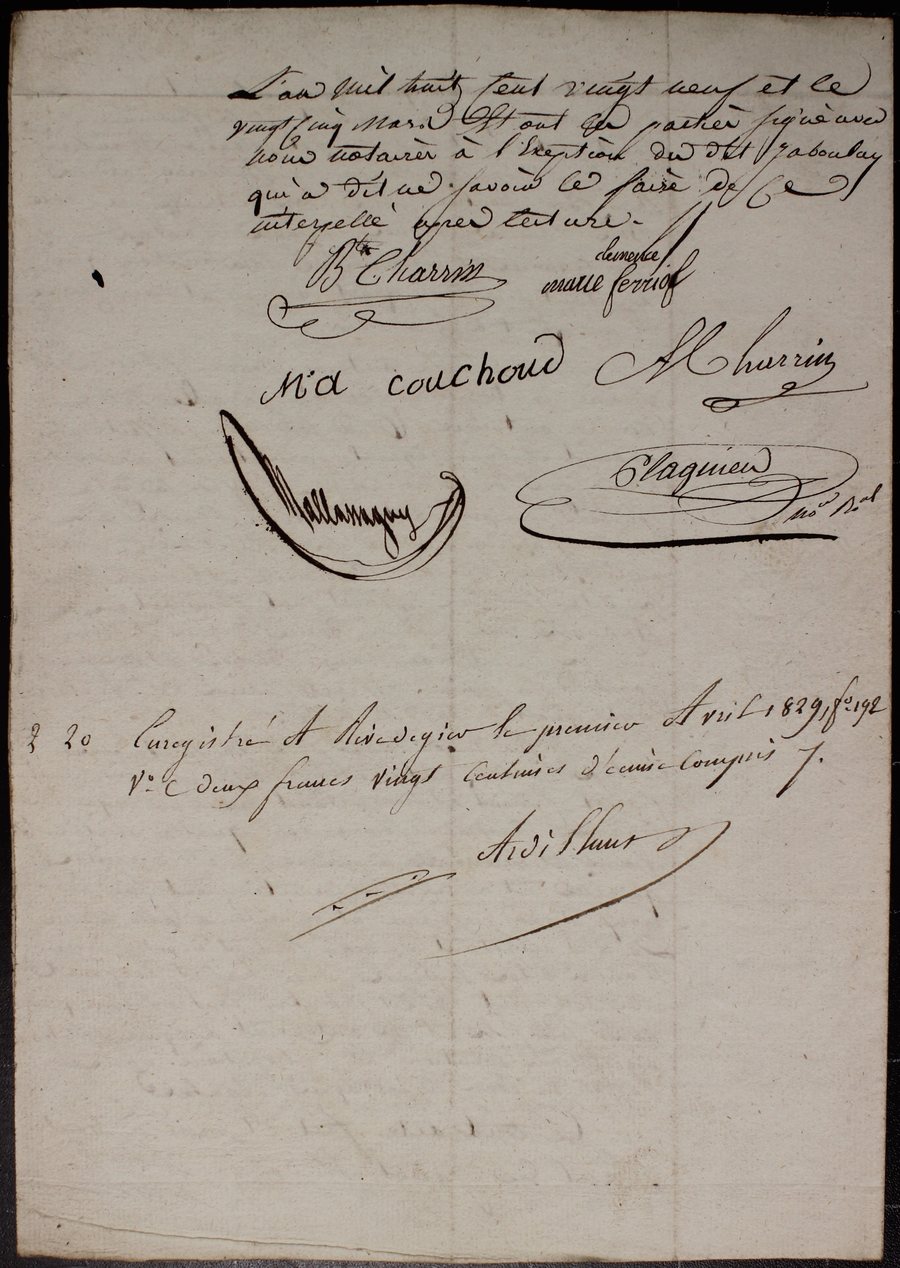 L'an mil huit cent vingt neuf et le
vingt cinq Mars Et ont les parties signé avec
nous notaires à l'Exeption du dit Jaboulay
qui a dit ne savoir le faire de ce
interpellé après lecture.
Bte Charrin
clemence
marie ferriol
Md couchoud
A Charrin
Mallassagny
Plagnieu
nore Ral
2 20 Enregistré A Rivedegier le premier Avril 1829, fo. 192
Vo. C deux francs vingt Centimes d'ecime Compris
Ardillant